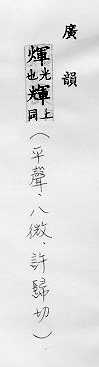 廣韻
煇光也輝上同
（平聲．八微．許歸切）